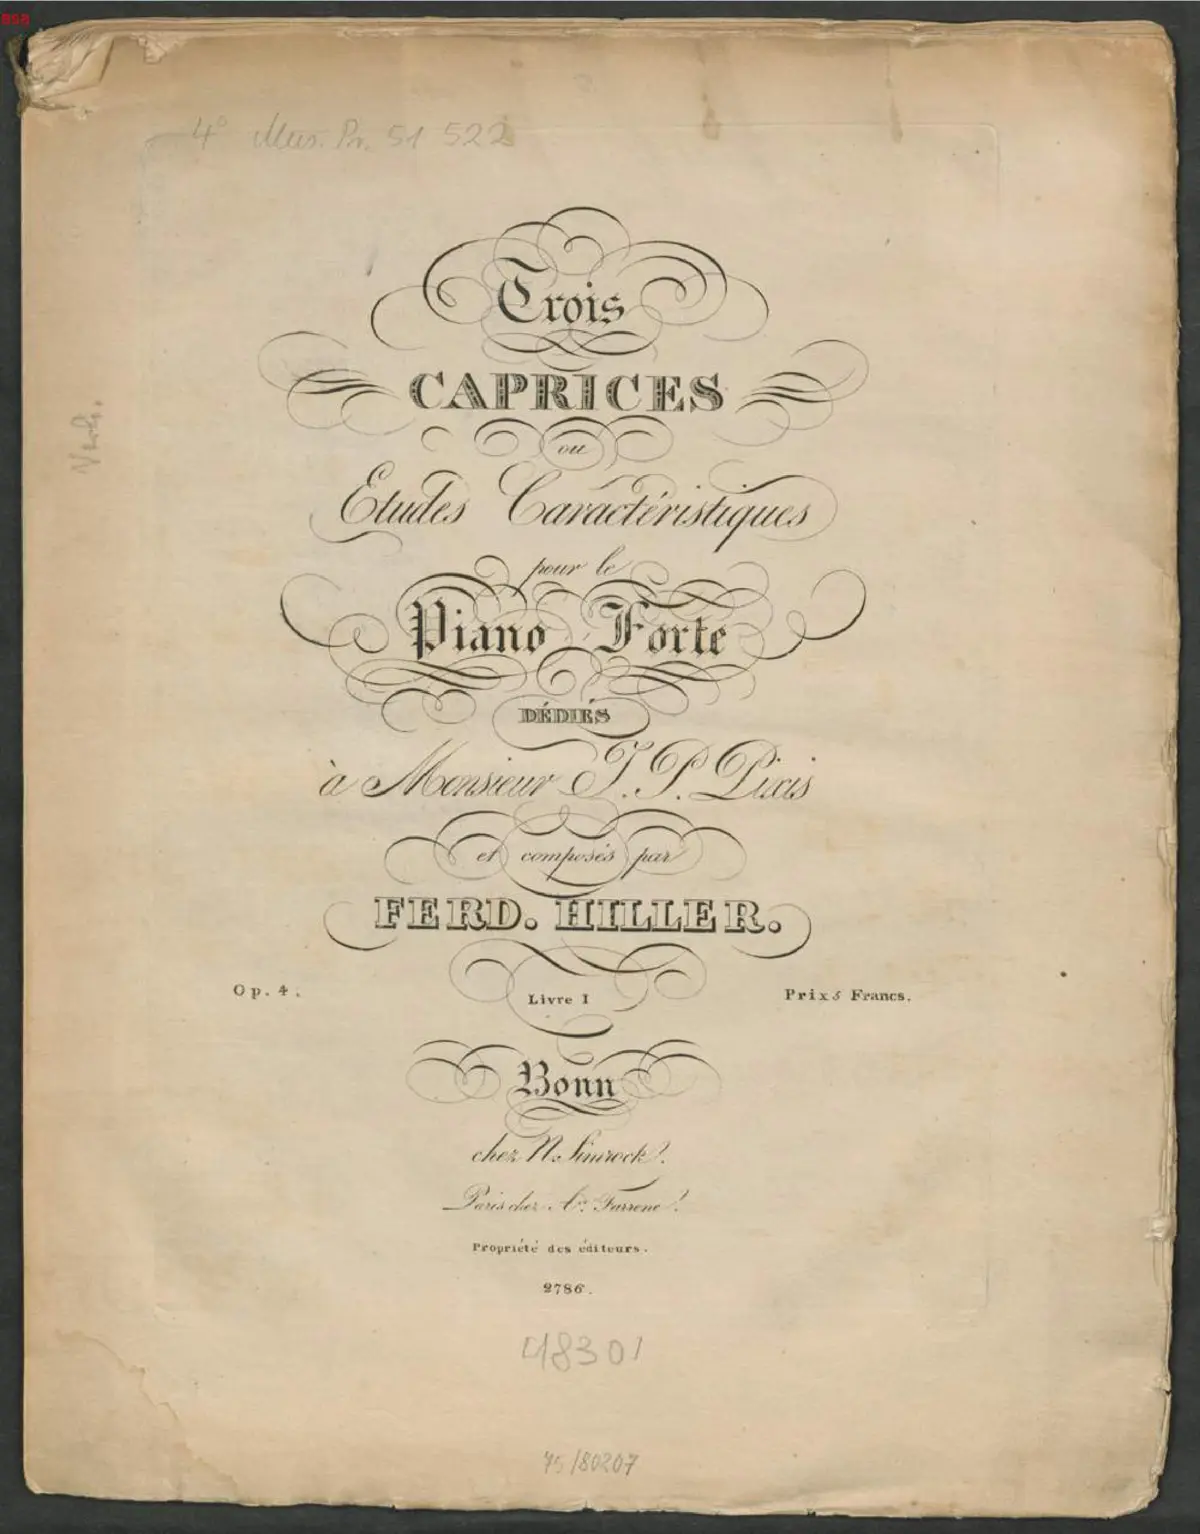 BSB
4° Mus. Pr. 51 522
Trois
CAPRICES
ou
Etudes Caractéristiques
pour le
Piano Forte
DÉDIÉS
à Monsieur J. P. Pixis
et composés par
FERD. HILLER.
Op. 4.
Livre I
Prix 5 Francs.
Bonn
chez N. Simrock.
Paris chez A. Farrenc.
Propriété des éditeurs.
2786.
48301
75/80207